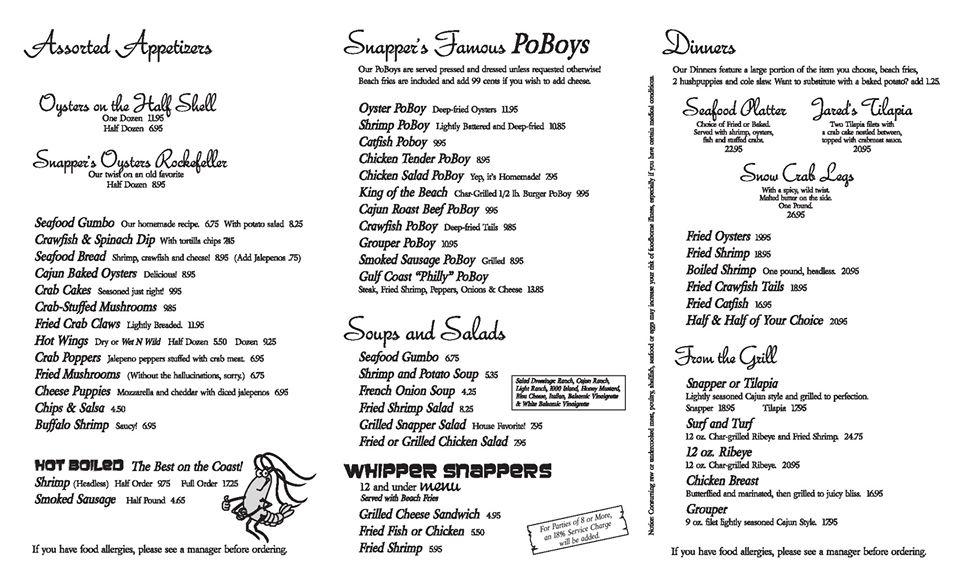 Assorted Appetizers
Oysters on the Half Shell
One Dozen 11.95
Half Dozen 6.95
Snapper's Oysters Rockefeller
Our twist on an old favorite
Half Dozen 8.95
Seafood Gumbo Our homemade recipe. 6.75 With potato salad 8.25
Crawfish & Spinach Dip With tortilla chips 7.85
Seafood Bread Shrimp, crawfish and cheese! 8.95 (Add Jalepenos .75)
Cajun Baked Oysters Delicious! 8.95
Crab Cakes Seasoned just right! 9.95
Crab-Stuffed Mushrooms 9.85
Fried Crab Claws Lightly Breaded. 11.95
Hot Wings Dry or Wet N Wild Half Dozen 5.50 Dozen 9.25
Crab Poppers Jalepeno peppers stuffed with crab meat. 6.95
Fried Mushrooms (Without the hallucinations, sorry.) 6.75
Cheese Puppies Mozzarella and cheddar with diced jalepenos 6.95
Chips & Salsa 4.50
Buffalo Shrimp Saucy! 6.95
HOT BOILED The Best on the Coast!
Shrimp (Headless) Half Order 9.75 Full Order 17.25
Smoked Sausage Half Pound 4.65
If you have food allergies, please see a manager before ordering.
Snapper's Famous PoBoys
Our PoBoys are served pressed and dressed unless requested otherwise!
Beach fries are included and add 99 cents if you wish to add cheese.
Oyster PoBoy Deep-fried Oysters 11.95
Shrimp PoBoy Lightly Battered and Deep-fried 10.85
Catfish Poboy 9.95
Chicken Tender PoBoy 8.95
Chicken Salad PoBoy Yep, it's Homemade! 7.95
King of the Beach Char-Grilled 1/2 lb. Burger PoBoy 9.95
Cajun Roast Beef PoBoy 9.95
Crawfish PoBoy Deep-fried Tails 9.85
Grouper PoBoy 10.95
Smoked Sausage PoBoy Grilled 8.95
Gulf Coast "Philly" PoBoy
Steak, Fried Shrimp, Peppers, Onions & Cheese 13.85
Soups and Salads
Seafood Gumbo 6.75
Shrimp and Potato Soup 5.35
French Onion Soup 4.25
Fried Shrimp Salad 8.25
Grilled Snapper Salad House Favorite! 7.95
Fried or Grilled Chicken Salad 7.95
Salad Dressings: Ranch, Cajun Ranch,
Light Ranch, 1000 Island, Honey Mustard,
Bleu Cheese, Italian, Balsamic Vinaigrette
& White Balsamic Vinaigrette
WHIPPER SNAPPERS
12 and under menu
Served with Beach Fries
Grilled Cheese Sandwich 4.95
Fried Fish or Chicken 5.50
Fried Shrimp 5.95
For Parties of 8 or More,
an 18% Service Charge
will be added.
If you have food allergies, please see a manager before ordering.
Notice: Consuming raw or undercooked meat, poultry, shellfish, seafood or eggs may increase your risk of foodborne illness, especially if you have certain medical conditions.
Dinners
Our Dinners feature a large portion of the item you choose, beach fries,
2 hushpuppies and cole slaw. Want to substitute with a baked potato? add 1.25.
Seafood Platter
Choice of Fried or Baked.
Served with shrimp, oysters,
fish and stuffed crabs.
22.95
Jared's Tilapia
Two Tilapia filets with
a crab cake nestled between,
topped with crabmeat sauce.
20.95
Snow Crab Legs
With a spicy, wild twist.
Melted butter on the side.
One Pound.
26.95
Fried Oysters 19.95
Fried Shrimp 18.95
Boiled Shrimp One pound, headless. 20.95
Fried Crawfish Tails 18.95
Fried Catfish 16.95
Half & Half of Your Choice 20.95
From the Grill
Snapper or Tilapia
Lightly seasoned Cajun style and grilled to perfection.
Snapper 18.95 Tilapia 17.95
Surf and Turf
12 oz. Char-grilled Ribeye and Fried Shrimp. 24.75
12 oz. Ribeye
12 oz. Char-grilled Ribeye. 20.95
Chicken Breast
Butterflied and marinated, then grilled to juicy bliss. 16.95
Grouper
9 oz. filet lightly seasoned Cajun Style. 17.95
If you have food allergies, please see a manager before ordering.